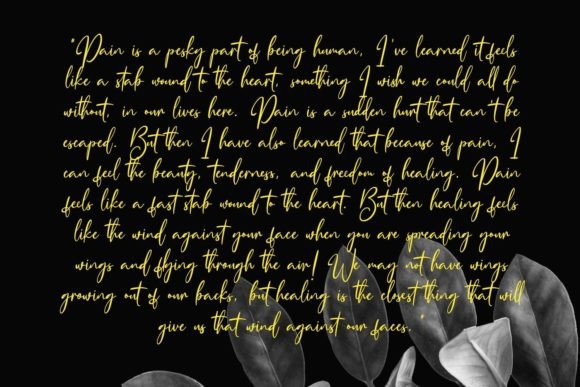 "Pain is a pesky part of being human, I've learned it feels
like a stab wound to the heart, something I wish we could all do
without, in our lives here. Pain is a sudden hurt that can't be
escaped. But then I have also learned that because of pain, I
can feel the beauty, tenderness, and freedom of healing. Pain
feels like a fast stab wound to the heart. But then healing feels
like the wind against your face when you are spreading your
wings and flying through the air! We may not have wings
growing out of our backs, but healing is the closest thing that will
give us that wind against our faces."